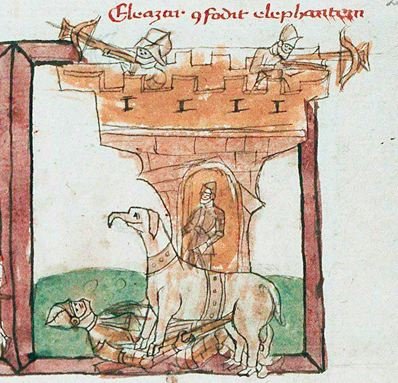 Eleazar ꝯfodit elephantem